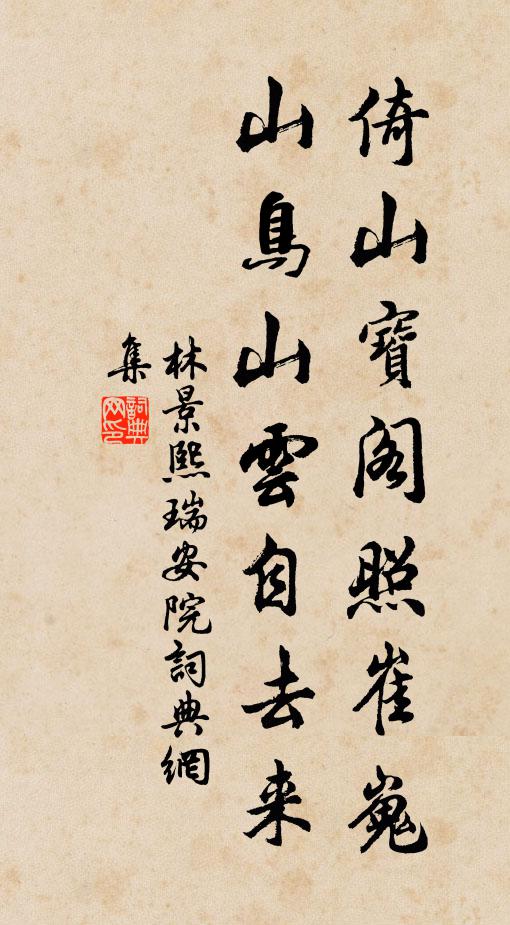 倚山寶閣照崔嵬
山鳥山雲自去来
林景熙瑞安院詞典網
集
詞典网印